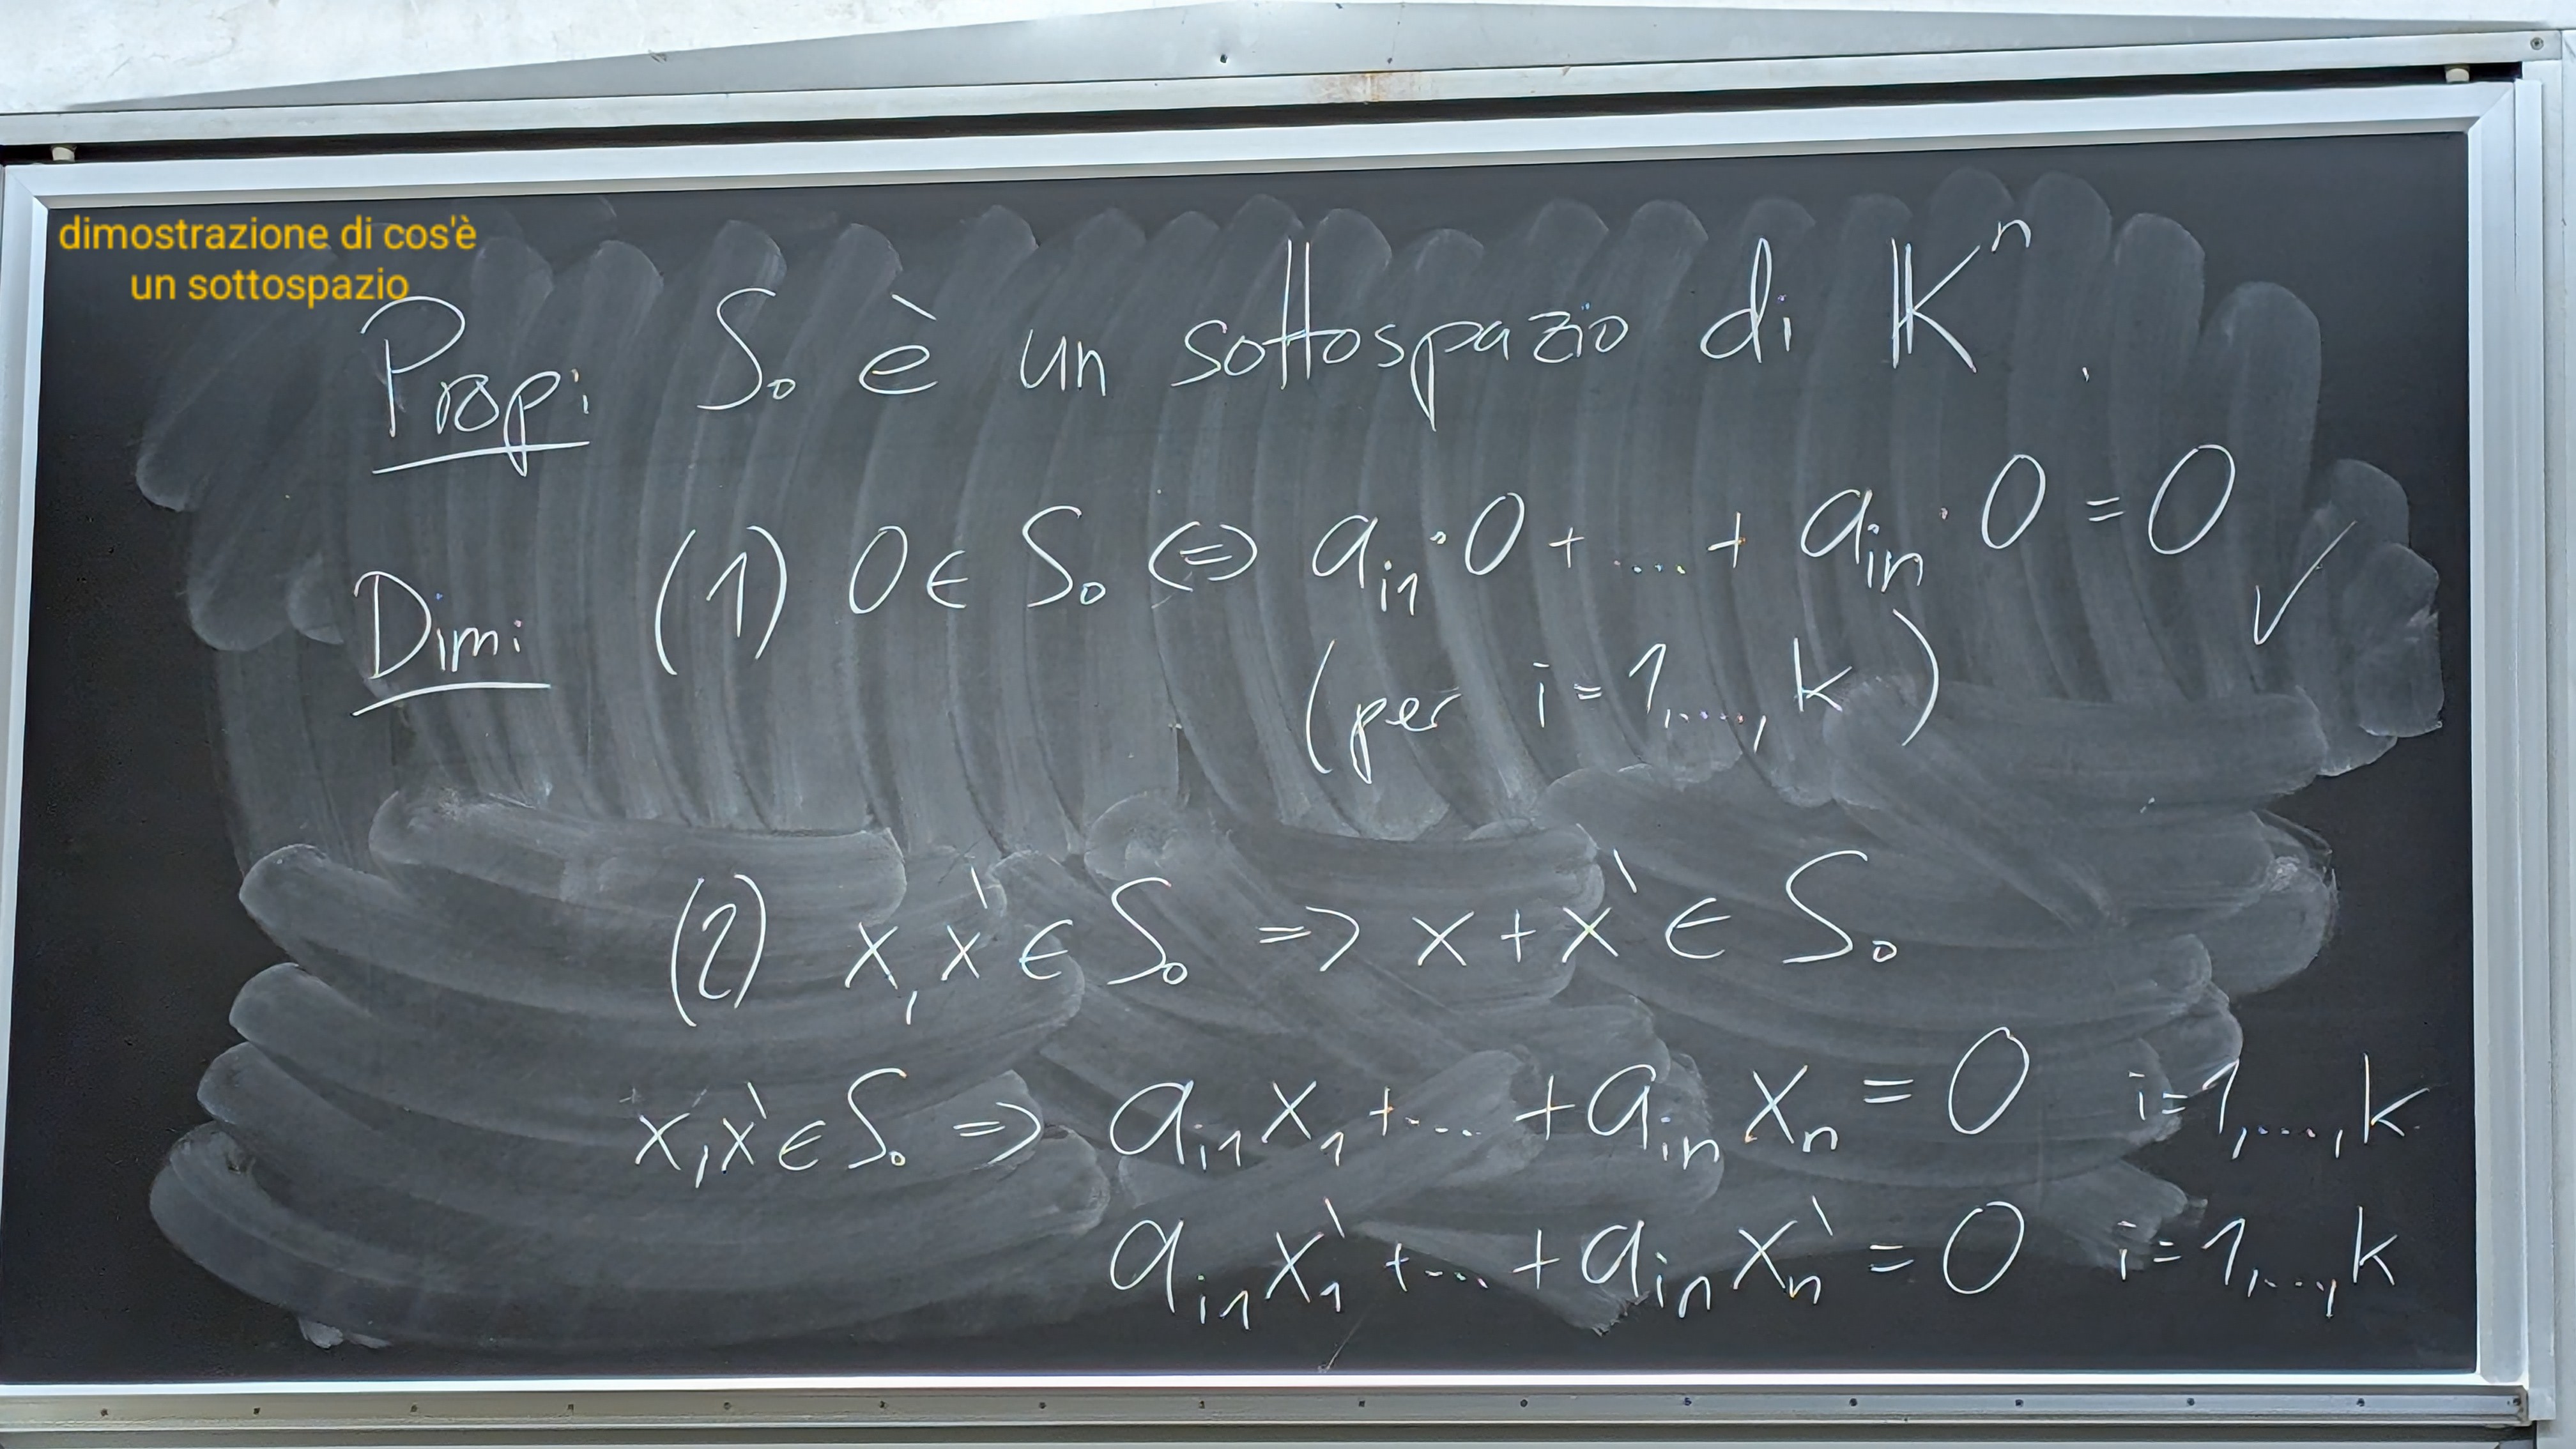 dimostrazione di cos'è
un sottospazio
Prop: S₀ è un sottospazio di 𝕂ⁿ.
Dim: (1) 0 ∈ S₀ ⇔ aᵢ₁·0 + .... + aᵢₙ·0 = 0 ✓
(per i=1,....,k)
(2) x, x` ∈ S₀ => x + x` ∈ S₀
x, x` ∈ S₀ => aᵢ₁ x₁ +.... + aᵢₙ xₙ = 0 i=1,....,k
aᵢ₁ x₁` +.... + aᵢₙ xₙ` = 0 i=1,....,k